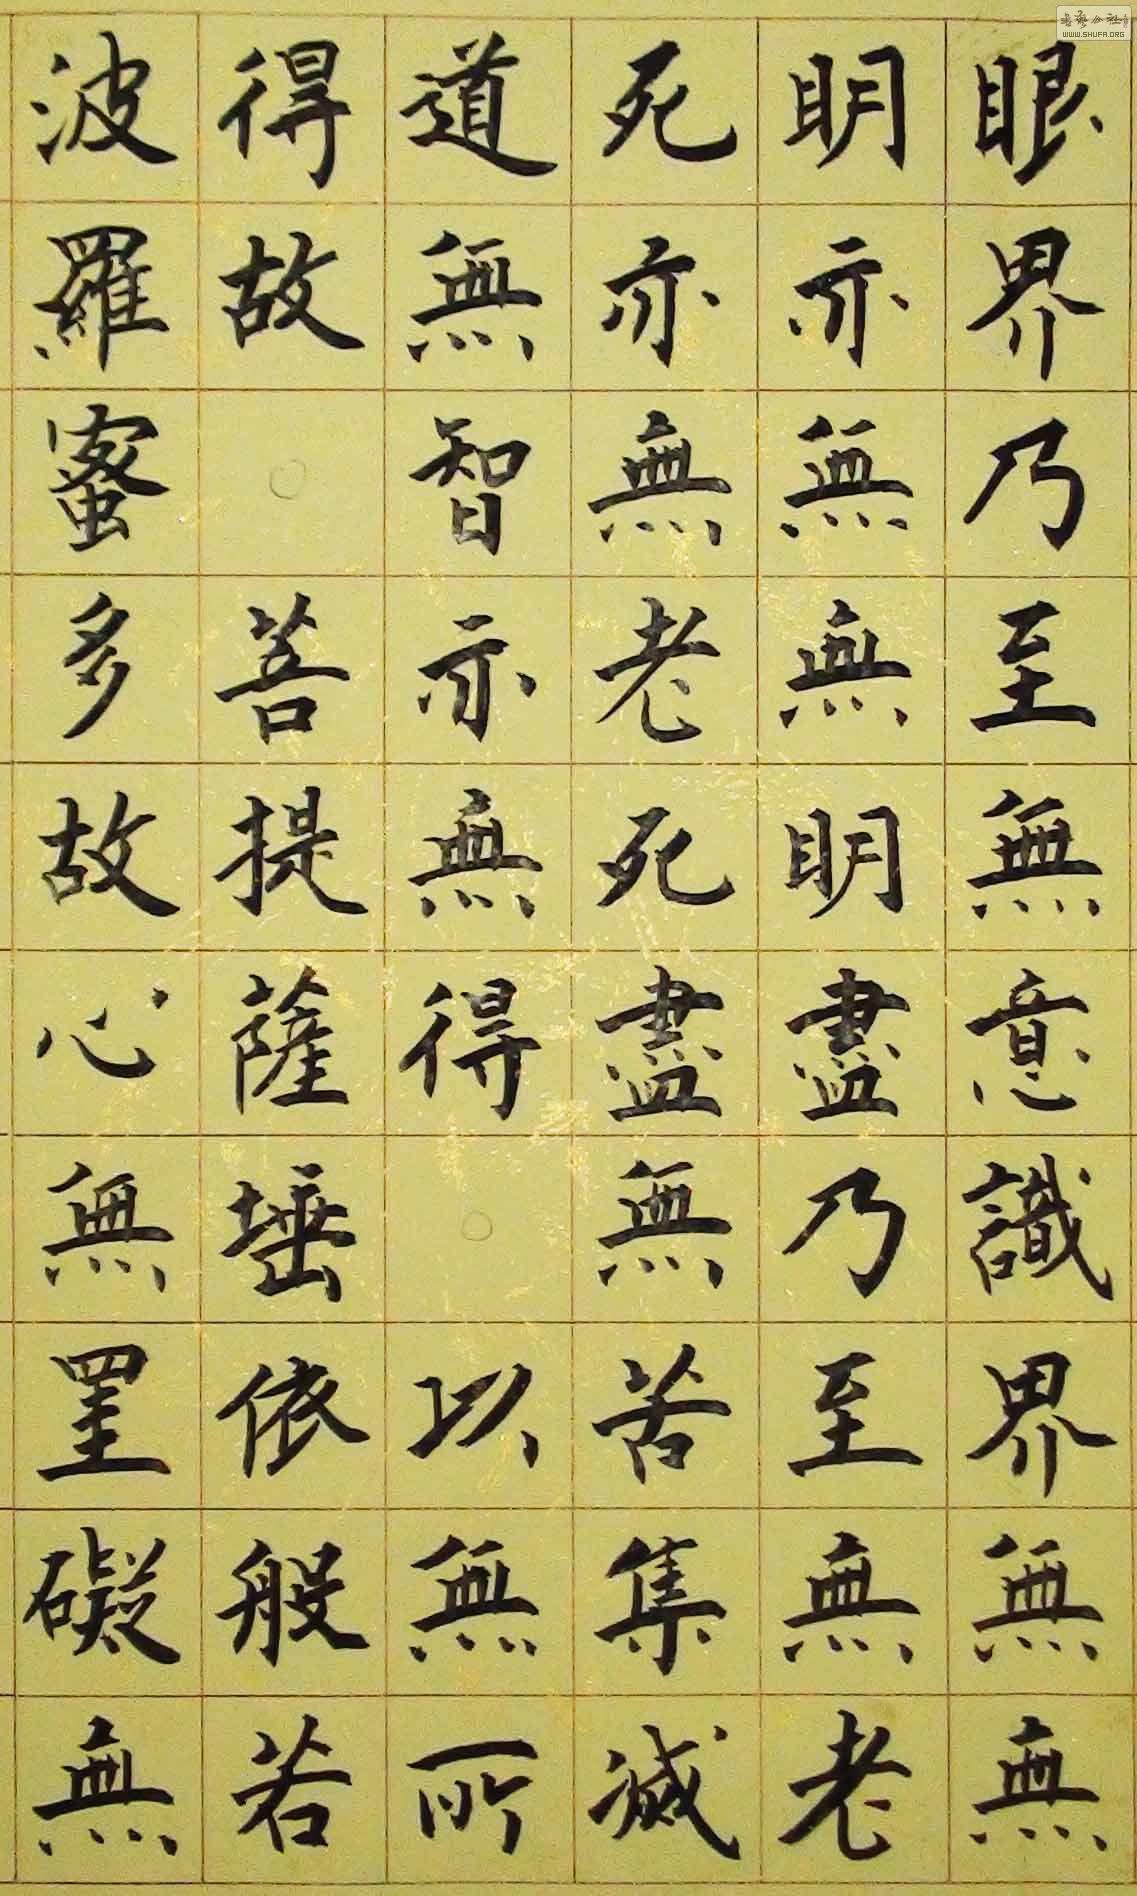 眼界乃至無意識界無無
明亦無無明盡乃至無老
死亦無老死盡無苦集滅
道無智亦無得以無所
得故菩提薩埵依般若
波羅蜜多故心無罣礙無
WWW.SHUFA.ORG